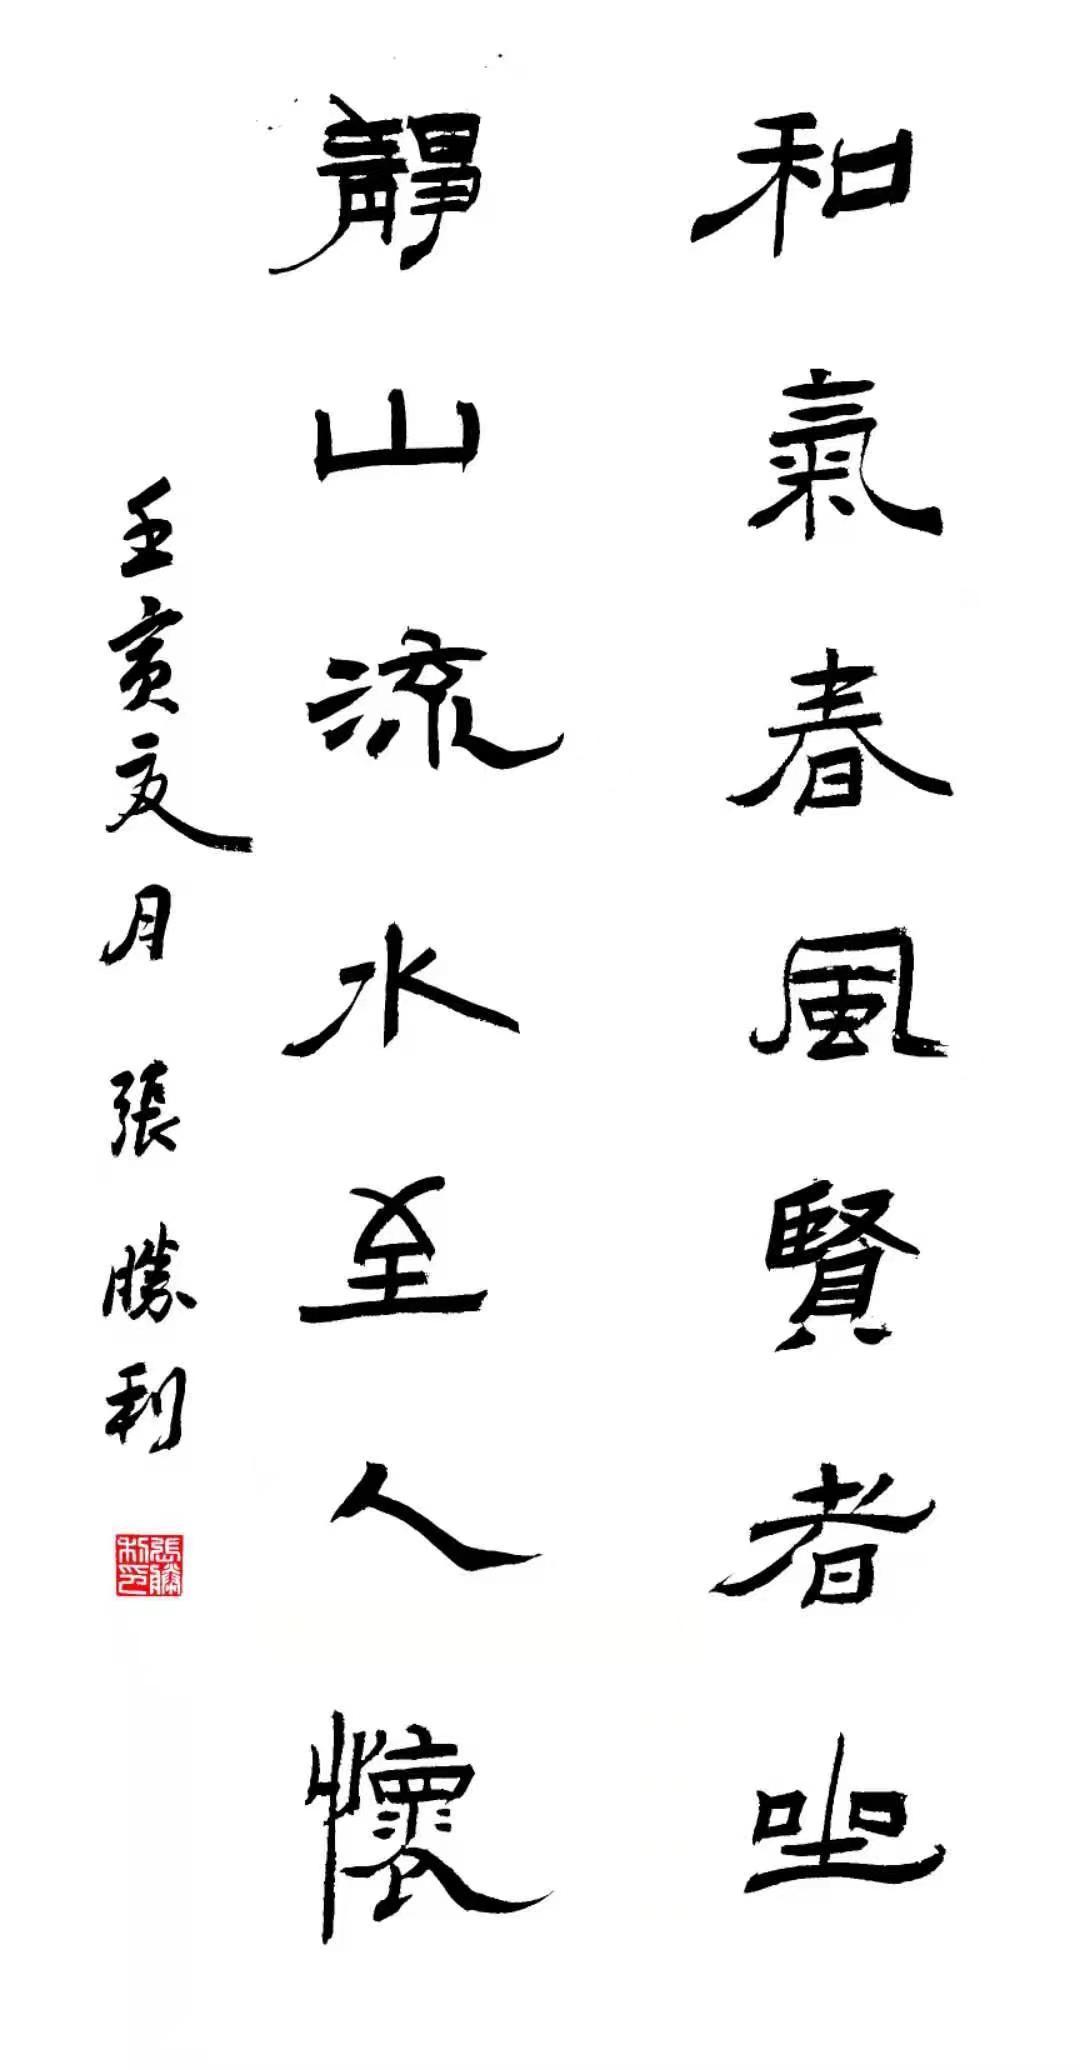 和氣春風賢者坐
靜山流水至人懷
壬寅夏月 張勝利
張勝利印